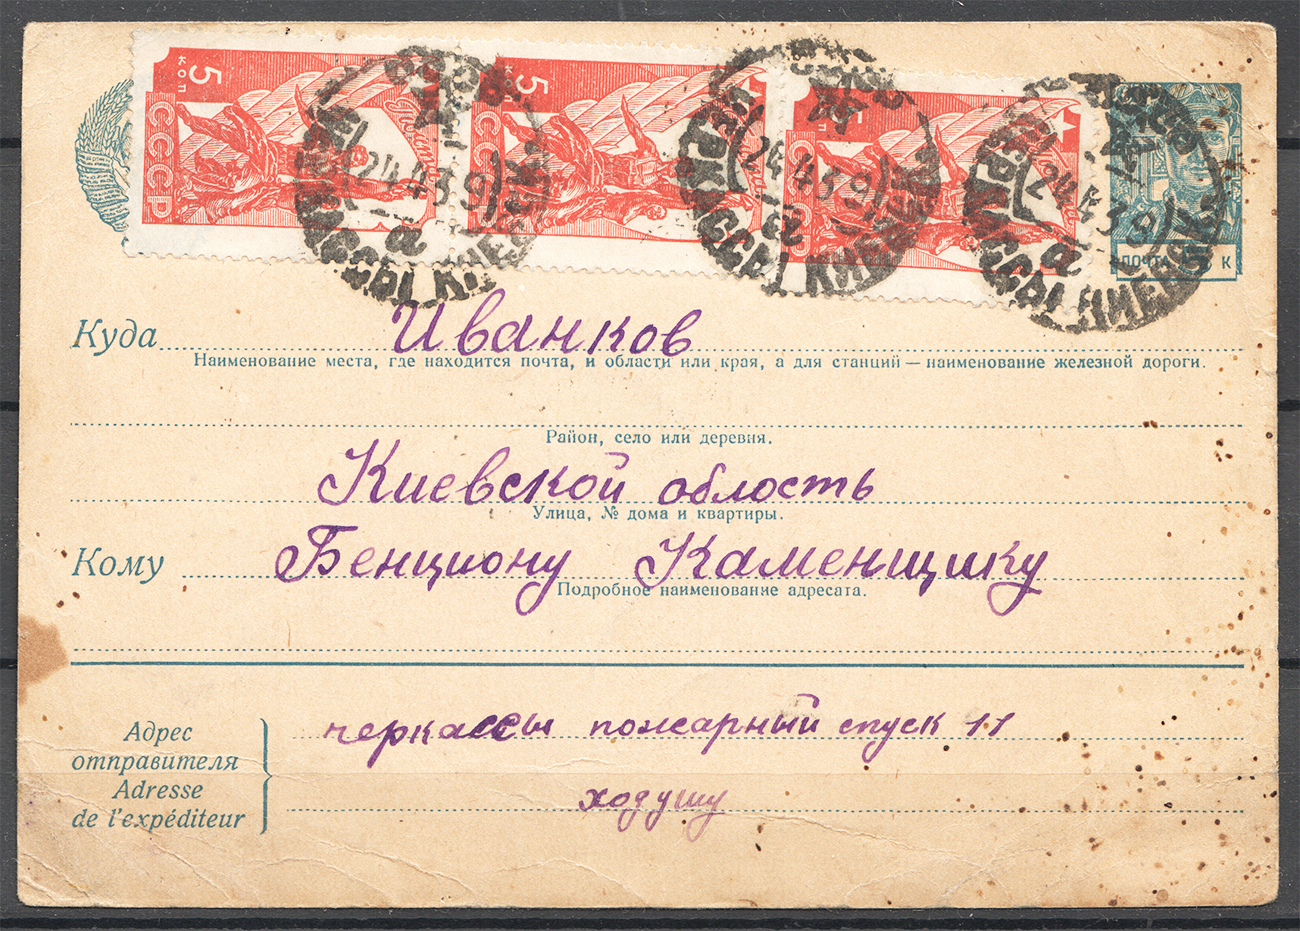 5 коп СССР
5 коп СССР
24 4 39
24 4 39
24 4 39
ПОЧТА К
Куда Иванков
Наименование места, где находится почта, и области или края, а для станций — наименование железной дороги.
Район, село или деревня.
Киевской облость
Улица, № дома и квартиры.
Кому Бенциону Каменщику
Подробное наименование адресата.
Адрес
отправителя
Adresse
de l'expéditeur
черкассы пожарный спуск 11
ходушу